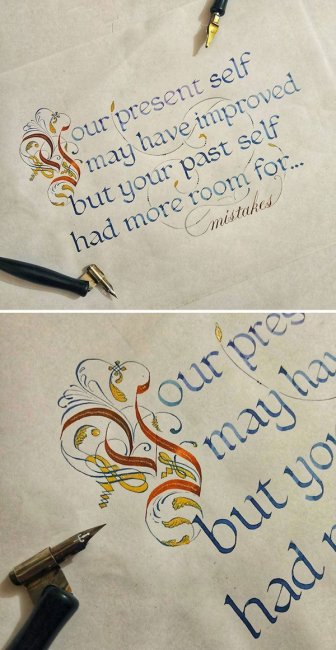 Your present self
may have improved
but your past self
had more room for...
mistakes
Your pres
may ha
but yo
had m